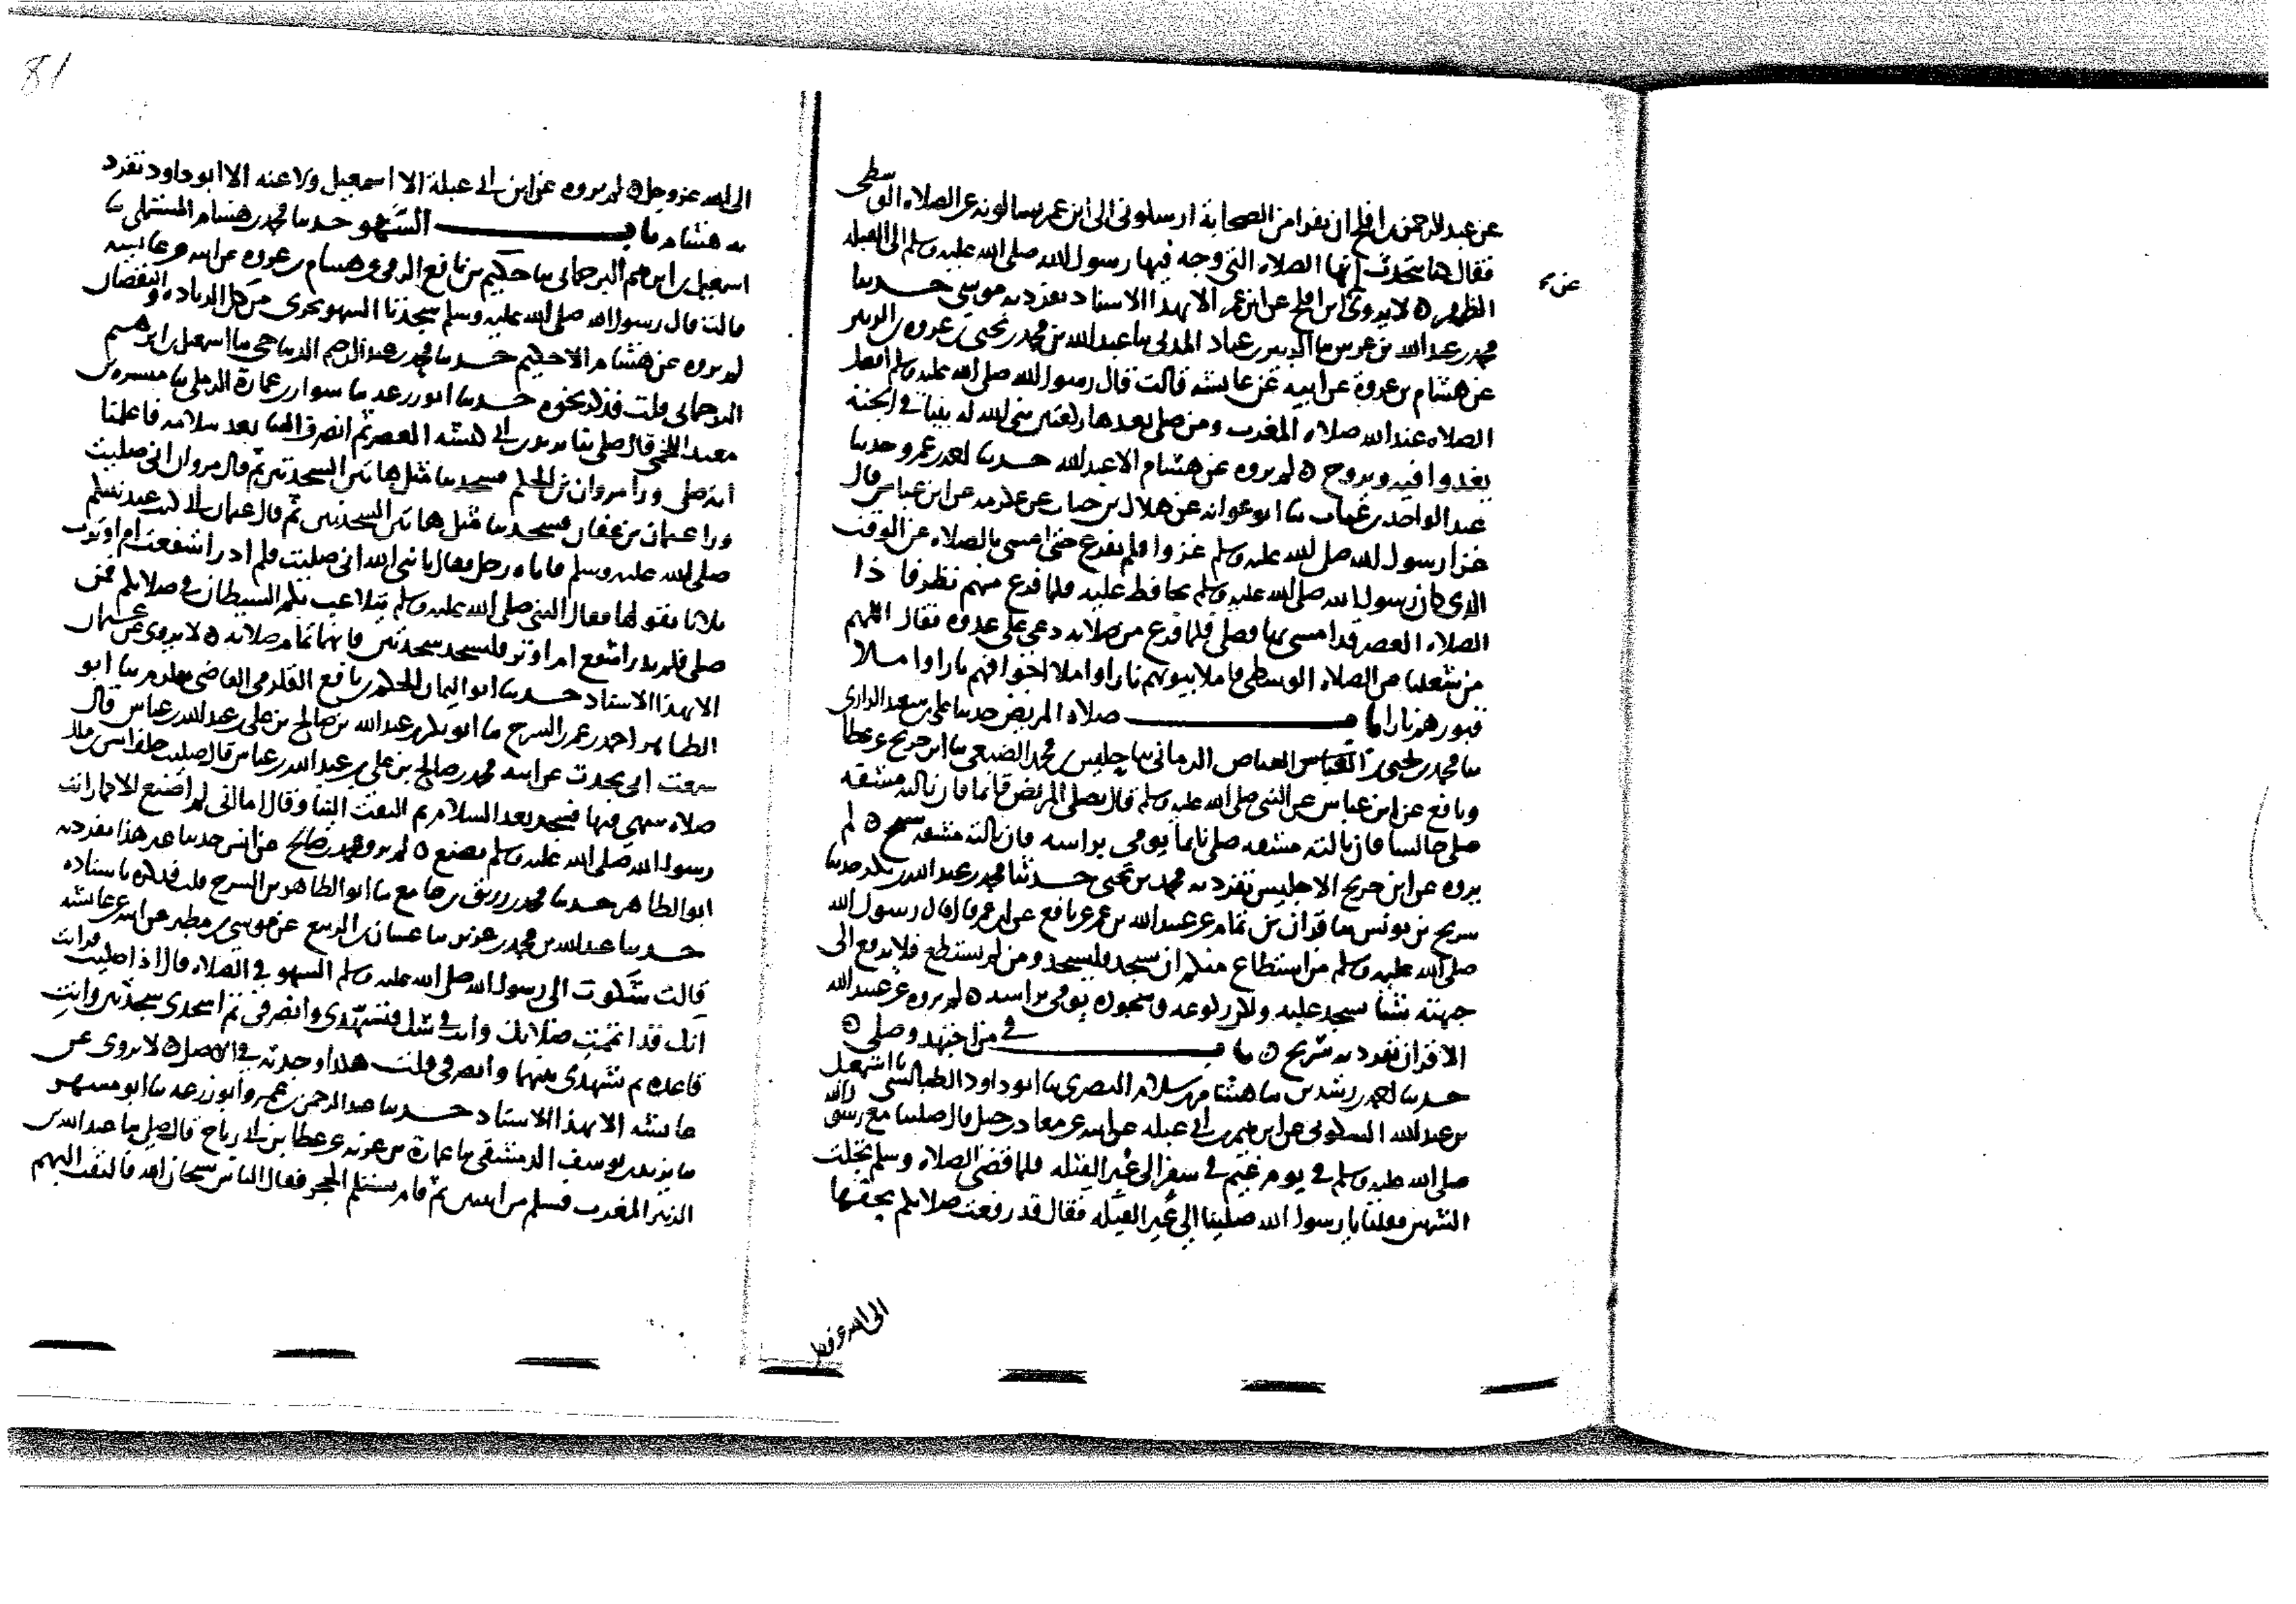 عن عبد الرحمن بن افلح ان نفرا من الصحابة ارسلونى الى ابن عمر يسالونه عن الصلاه الوسطى
فقال كنا نتحدث انها الصلاه التى وجه فيها رسول الله صلى الله عليه وسلم الى القبله
الظهر ه لا يروى عن ابن افلح عن ابن عمر الا بهذا الاسناد تفرد به موسى حدثنا
عن
محمد بن عبد الله بن عرس ثنا الزبير بن عباد المدنى ثنا عبد الله بن محمد بن يحيى بن عروه بن الزبير
عن هشام بن عروة عن ابيه عن عايشه قالت قال رسول الله صلى الله عليه وسلم افضل
الصلاه عند الله صلاه المغرب ومن صلى بعدها ركعتين بنى الله له بيتا فى الجنة
يغدوا فيه ويروح ه لم يروه عن هشام الا عبد الله حدثنا احمد بن عمرو حدثنا
عبد الواحد بن غياث ثنا ابو عوانه عن هلال بن خباب عن عكرمه عن ابن عباس قال
غزا رسول الله صلى الله عليه وسلم غزوا فلم يفرغ حتى امسى بالصلاه عن الوقت
الذى كان رسول الله صلى الله عليه وسلم يحافظ عليه فلما فرغ منهم نظر فاذا
الصلاه العصر قد امسى بها فصلى فلما فرغ من صلاته دعى على عدوه فقال اللهم
من شغلنا عن الصلاه الوسطى فاملا بيوتهم نارا واملا اجوافهم نارا واملا
قبورهم نارا باب صلاة المريض حدثنا على بن سعيد الرازى
ثنا محمد بن يحيى بن العباس الرمانى ثنا حلبس بن محمد الضبعى ثنا ابن جريج عن عطا
ونافع عن ابن عباس عن النبى صلى الله عليه وسلم قال يصلى المريض قائما فان نالته مشقه
صلى جالسا فان نالته مشقه صلى نائما يومى براسه فان نالته مشقه سبح ه لم
يروه عن ابن جريج الا حلبس تفرد به محمد بن يحيى حدثنا محمد بن عبد الله بن بكر حدثنا
سريج بن يونس ثنا قران بن تمام عن عبيد الله بن عمر عن نافع عن ابن عمر قال قال رسول الله
صلى الله عليه وسلم من استطاع منكم ان يسجد فليسجد ومن لم يستطع فلا يرفع الى
جبهته شيئا يسجد عليه ولكن ركوعه وسجوده يومى براسه ه لم يروه عن عبيد الله
الا قران تفرد به سريج ه باب فى من اجتهد وصلى ه
حدثنا احمد بن رشدين ثنا هشام بن سلام البصرى ثنا ابو داود الطيالسى ثنا اسمعيل
بن عبد الله السكونى عن ابرهيم بن ابى عبله عن ابيه عن معاذ بن جبل قال صلينا مع رسول الله
صلى الله عليه وسلم فى يوم غيم فى سفر الى غير القبله فلما قضى الصلاه وسلم تجلت
الشمس فقلنا يا رسول الله صلينا الى غير القبله فقال قد رفعت صلاتكم بحقها
الى الله عز وجل
81
الى الله عز وجل ه لم يروه عن ابن ابى عبلة الا اسمعيل ولا عنه الا ابو داود تفرد
به هشام باب السهو حدثنا محمد بن هشام المستملى ثنا
اسمعيل بن ابرهيم الترجمانى ثنا حكيم بن نافع الرقى عن هشام بن عروه عن ابيه عن عايشه
قالت قال رسول الله صلى الله عليه وسلم سجدتا السهو تجزى من كل الزياده والنقصان
لم يروه عن هشام الا حكيم حدثنا محمد بن عبد الرحيم الديباجى ثنا اسمعيل بن ابرهيم
الترجمانى قلت فذكر نحوه حدثنا ابو زرعه ثنا سوار بن عمارة الرملى ثنا مسره بن
معبد اللخمى قال صلى بنا يزيد بن ابى كبشه العصر ثم انصرف الينا بعد سلامه فاعلمنا
انه صلى ورا مروان بن الحكم فسجد بنا مثل هاتين السجدتين ثم قال مروان انى صليت
ورا عثمان بن عفان فسجد بنا مثل هاتين السجدتين ثم قال عثمان انى كنت عند نبيكم
صلى الله عليه وسلم فاتاه رجل فقال يا نبى الله انى صليت فلم ادر اشفعت ام اوترت
ثلاثا يقولها فقال النبى صلى الله عليه وسلم يتلاعب بكم الشيطان فى صلاتكم فمن
صلى فلم يدر اشفع ام اوتر فليسجد سجدتين فانهما تمام صلاته ه لا يروى عن عثمان
الا بهذا الاسناد حدثنا ابو اليمان الحكم بن نافع القلزمى القاضى بقلزم ثنا ابو
الطاهر احمد بن عمر السرح ثنا ابو بكر بن عبد الله بن صالح بن على بن عبد الله بن عباس قال
سمعت ابى يحدث عن ابيه محمد بن صالح بن على بن عبد الله بن عباس قال صليت خلف انس بن مالك
صلاه سهى فيها فسجد بعد السلام ثم التفت الينا وقال اما انى لم اصنع الا كما رايت
رسول الله صلى الله عليه وسلم يصنع ه لم يرو محمد بن صالح عن انس حديثا غير هذا تفرد به
ابو الطاهر حدثنا محمد بن رزيق بن جامع ثنا ابو الطاهر بن السرح قلت فذكره باسناده
حدثنا عبد الله بن محمد بن عزيز ثنا غسان بن الربيع عن موسى بن مطير عن ابيه عن عايشه
قالت شكوت الى رسول الله صلى الله عليه وسلم السهو فى الصلاه قال اذا صليت فرايت
انك قد اتممت صلاتك وانت فى شك فتشهدى وانصرفى ثم اسجدى سجدتين وانت
قاعده ثم تشهدى بينهما وانصرفى قلت هكذا وجدته فى الاصل ه لا يروى عن
عايشه الا بهذا الاسناد حدثنا عبد الرحمن بن عمرو ابو زرعه ثنا ابو مسهر
ثنا يزيد بن يوسف الدمشقى ثنا عمارة بن غزيه عن عطا بن ابى رباح قال صلى بنا عبد الله بن
الزبير المغرب فسلم من اثنتين ثم قام يستلم الحجر فقال الناس سبحان الله فالتفت اليهم